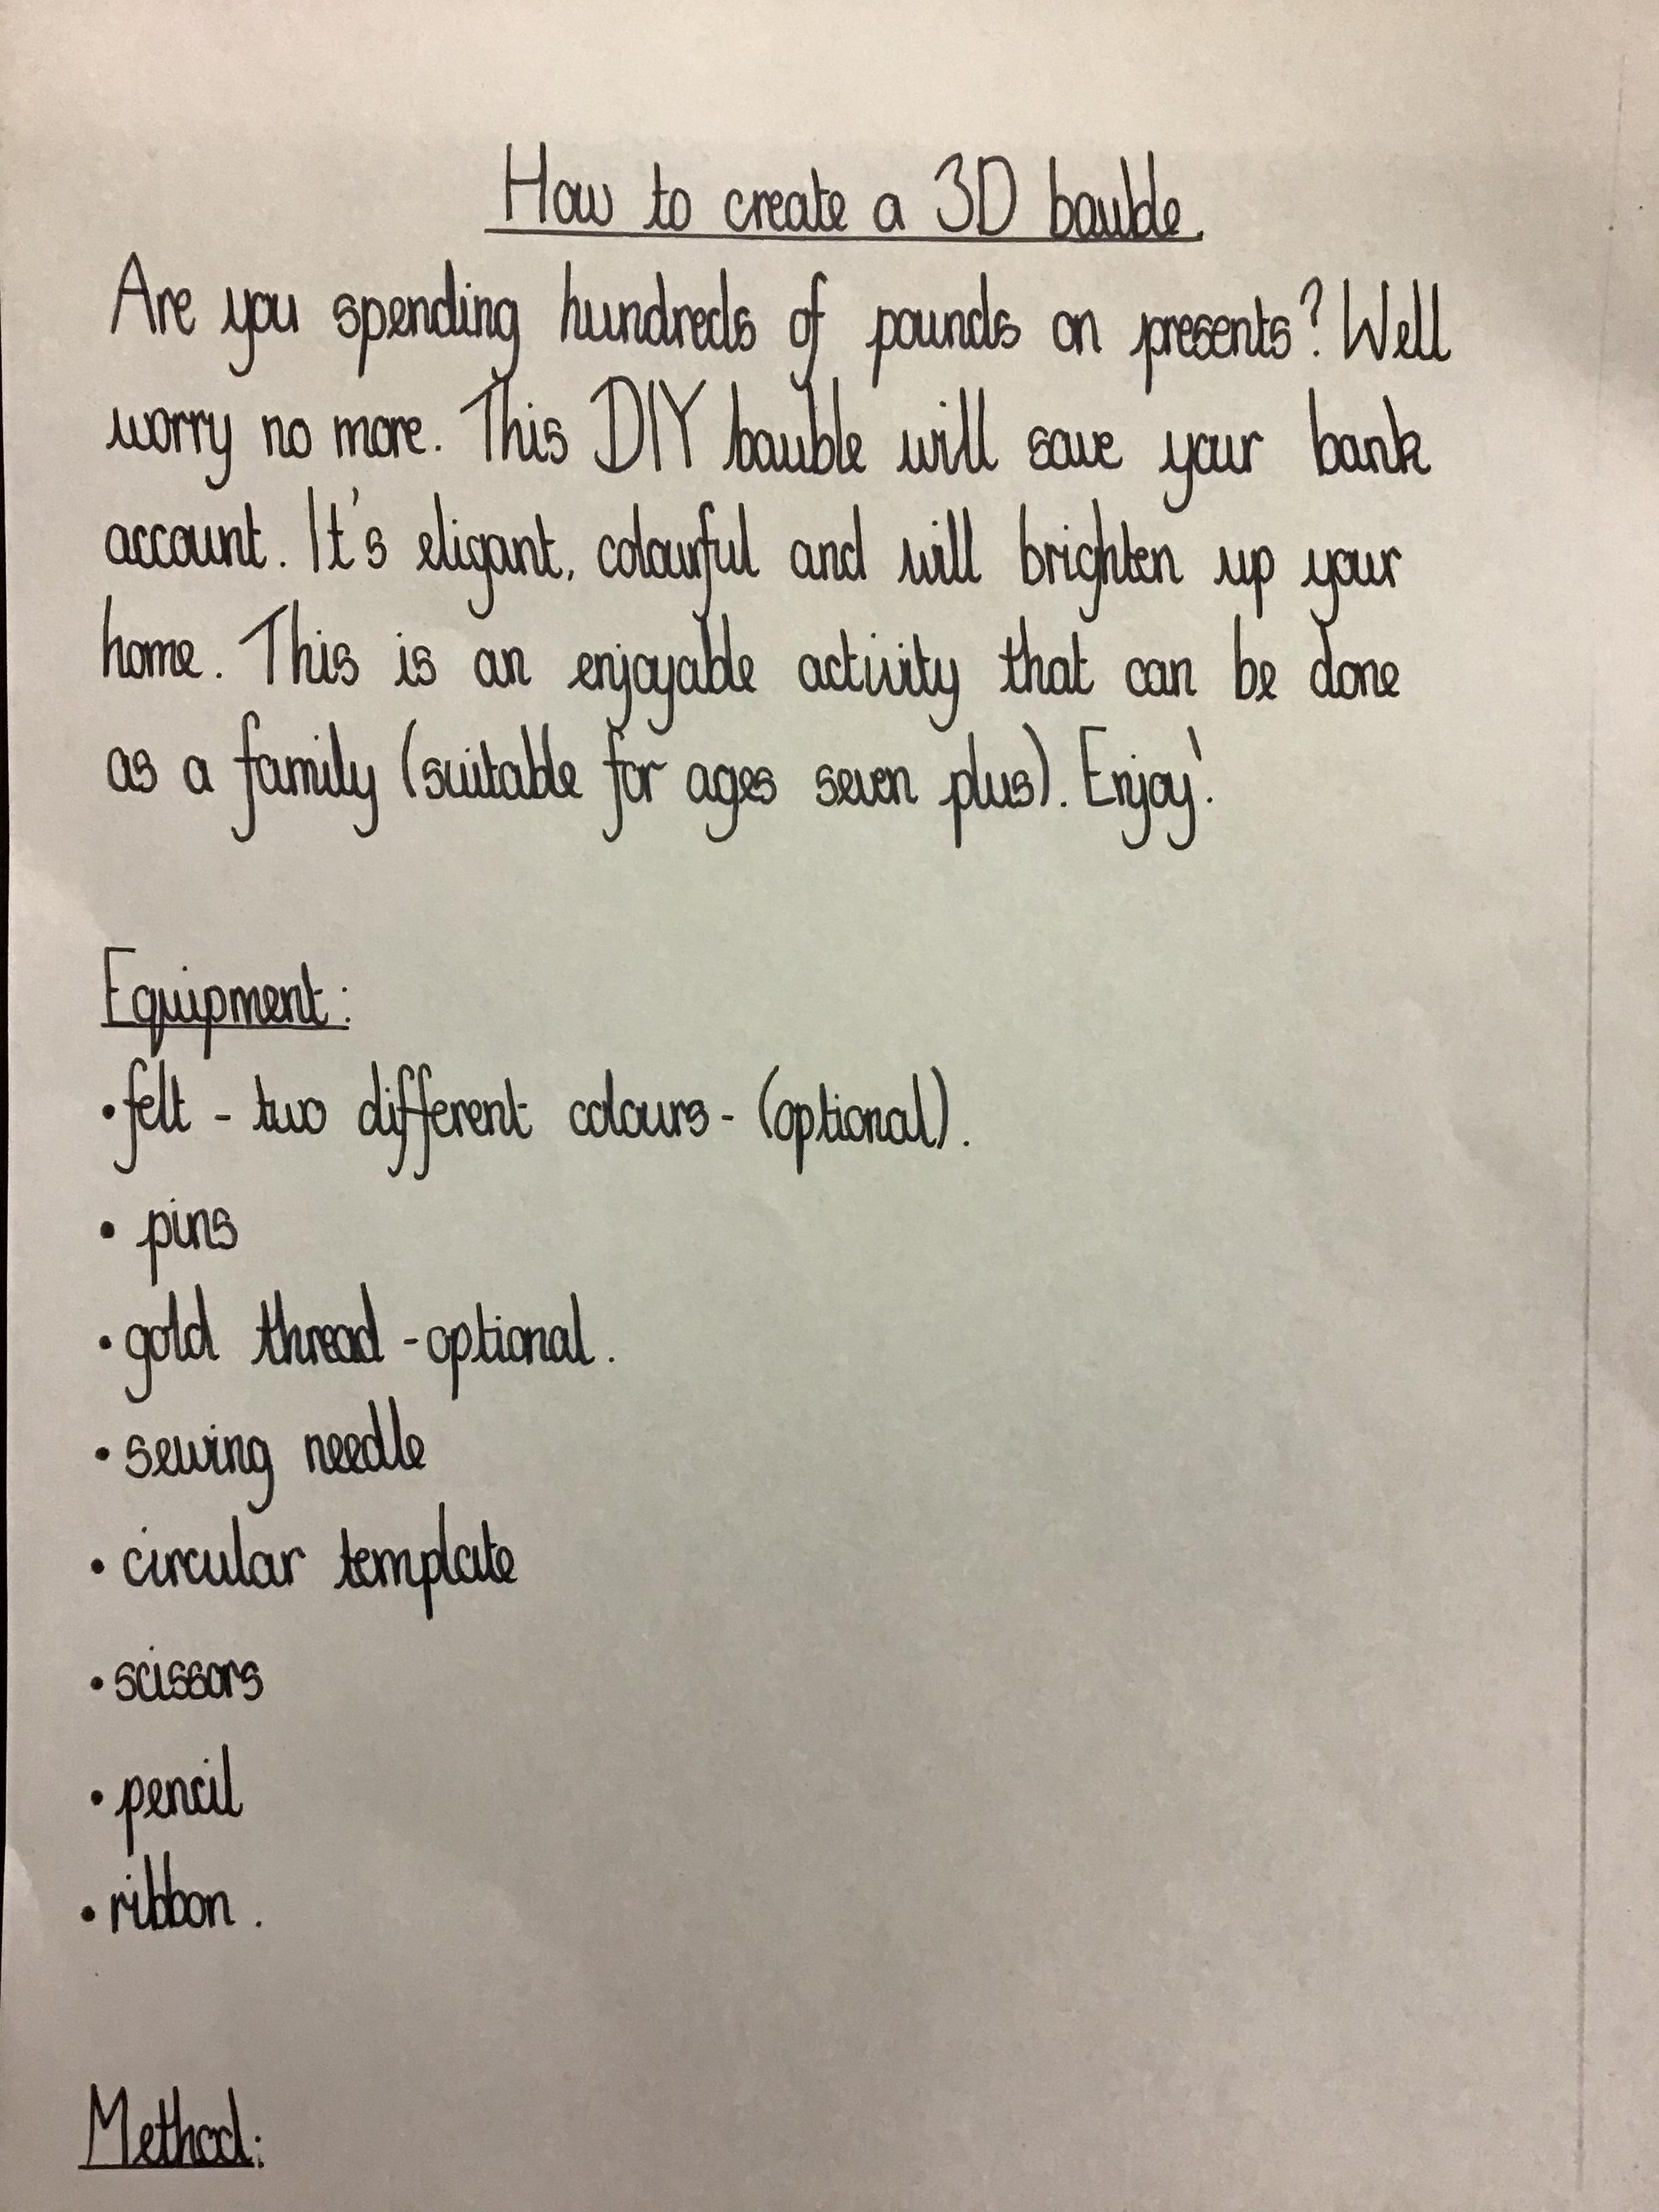 How to create a 3D bauble.
Are you spending hundreds of pounds on presents? Well
worry no more. This DIY bauble will save your bank
account. It's eligant, colourful and will brighten up your
home. This is an enjoyable activity that can be done
as a family (suitable for ages seven plus). Enjoy!
Equipment:
• felt - two different colours - (optional).
• pins
• gold thread - optional.
• sewing needle
• circular template
• scissors
• pencil
• ribbon.
Method: